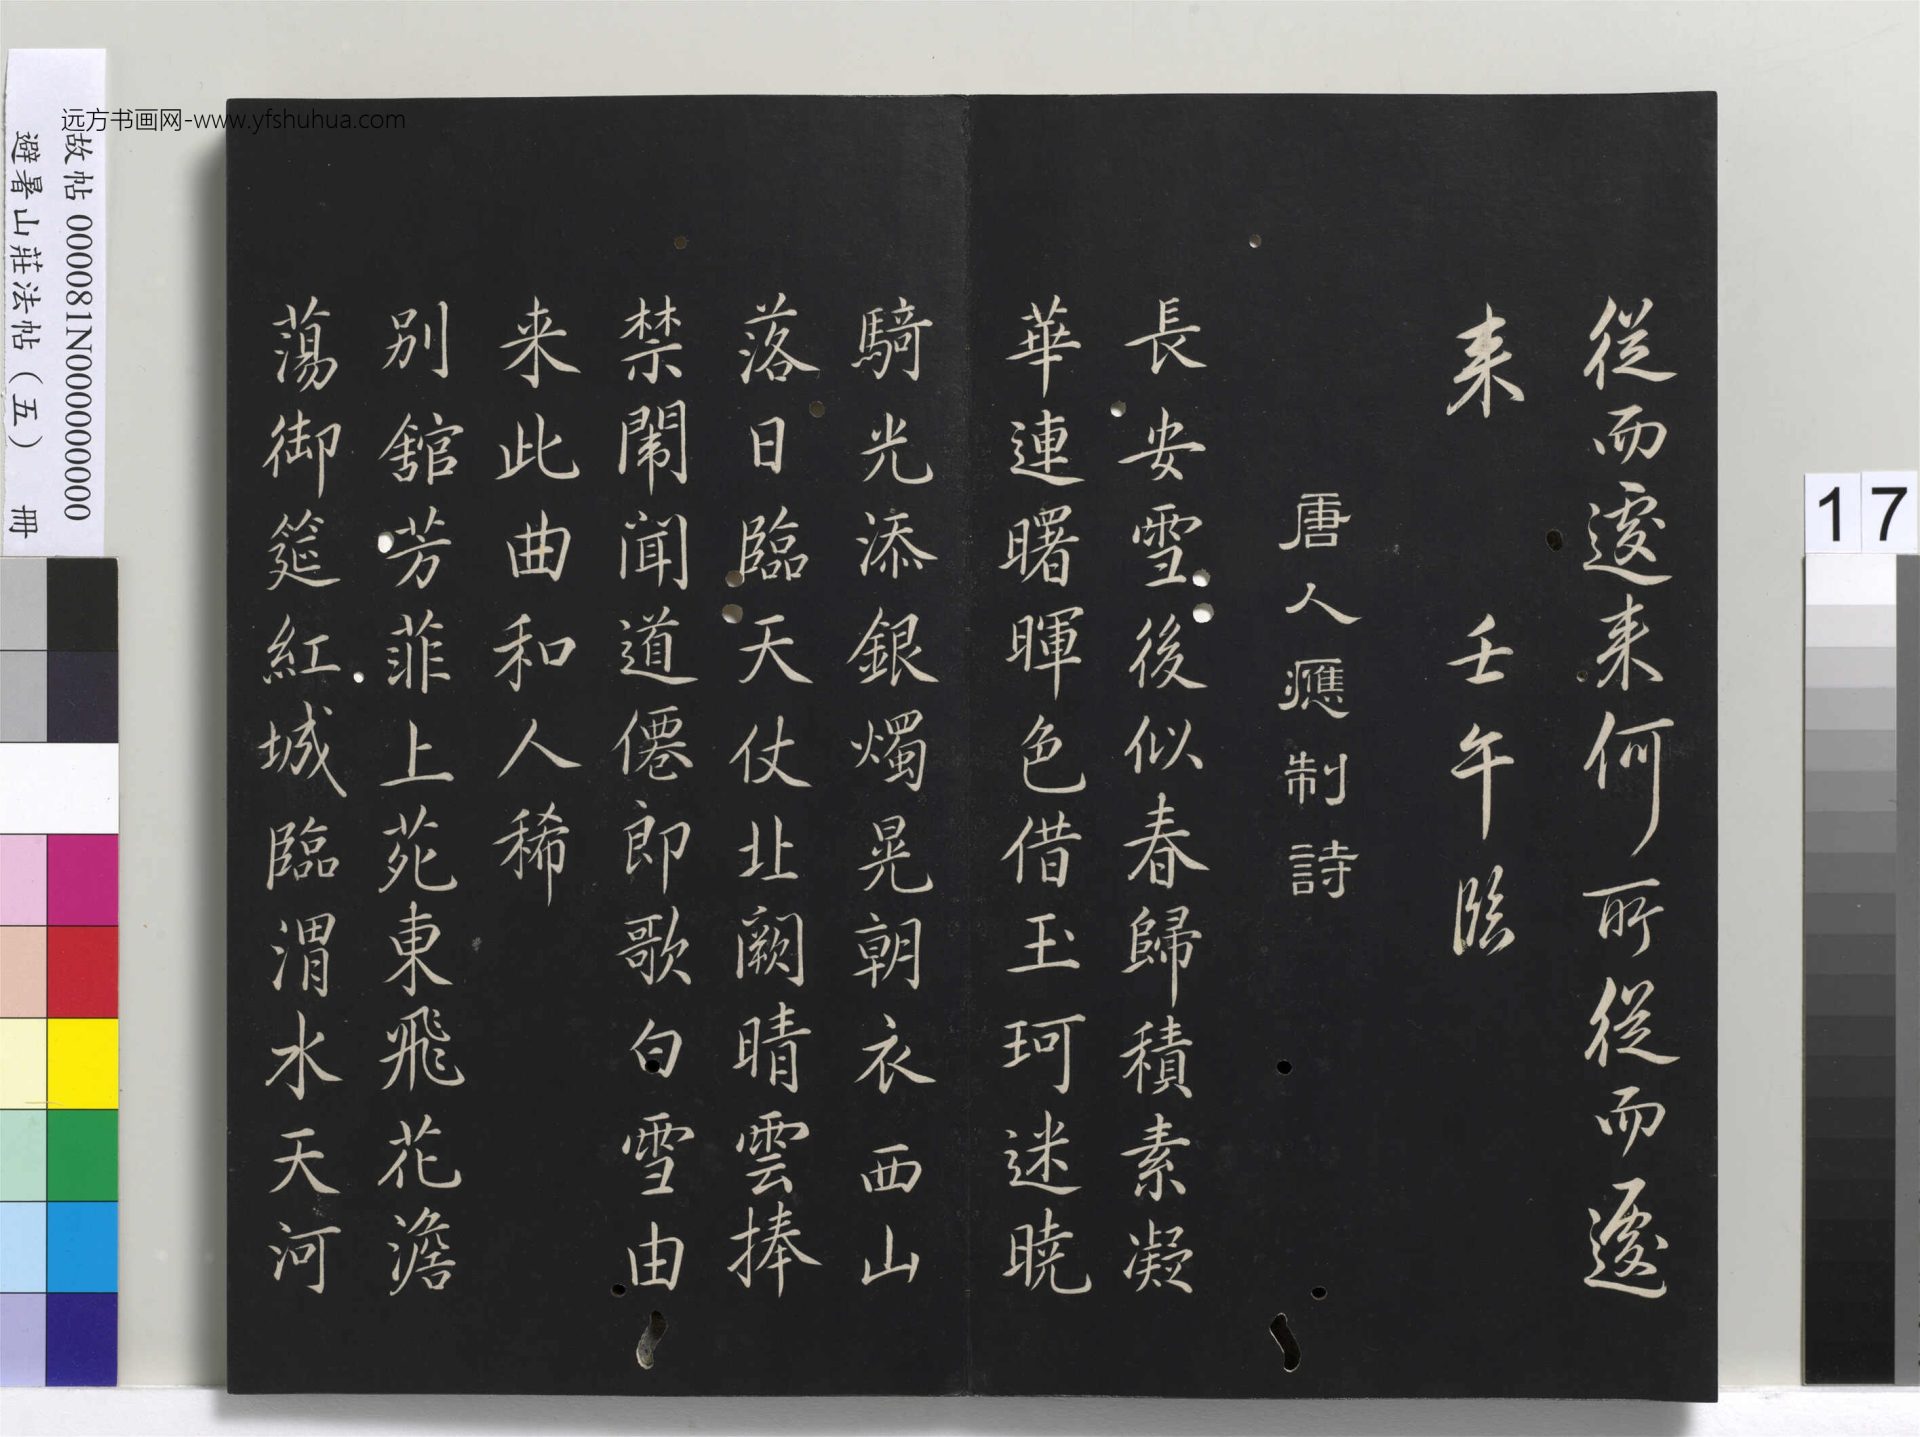 從而遽来何所從而遽
来 壬午臨
唐人應制詩
長安雪後似春歸積素凝
華連曙暉色借玉珂迷曉
騎光添銀燭晃朝衣西山
落日臨天仗北闕晴雲捧
禁闈聞道僊郎歌白雪由
来此曲和人稀
別舘芳菲上苑東飛花澹
蕩御筵紅城臨渭水天河
远方书画网-www.yfshuhua.com
故帖 000081N000000000
避暑山莊法帖(五) 冊
17